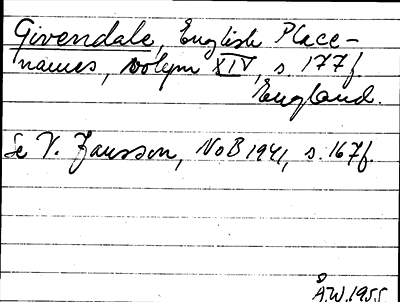 Givendale, English Place-
names, volym XIV, s. 177f
England.
Se V. Jansson, NoB 1941, s. 167f.
Å.W. 1955